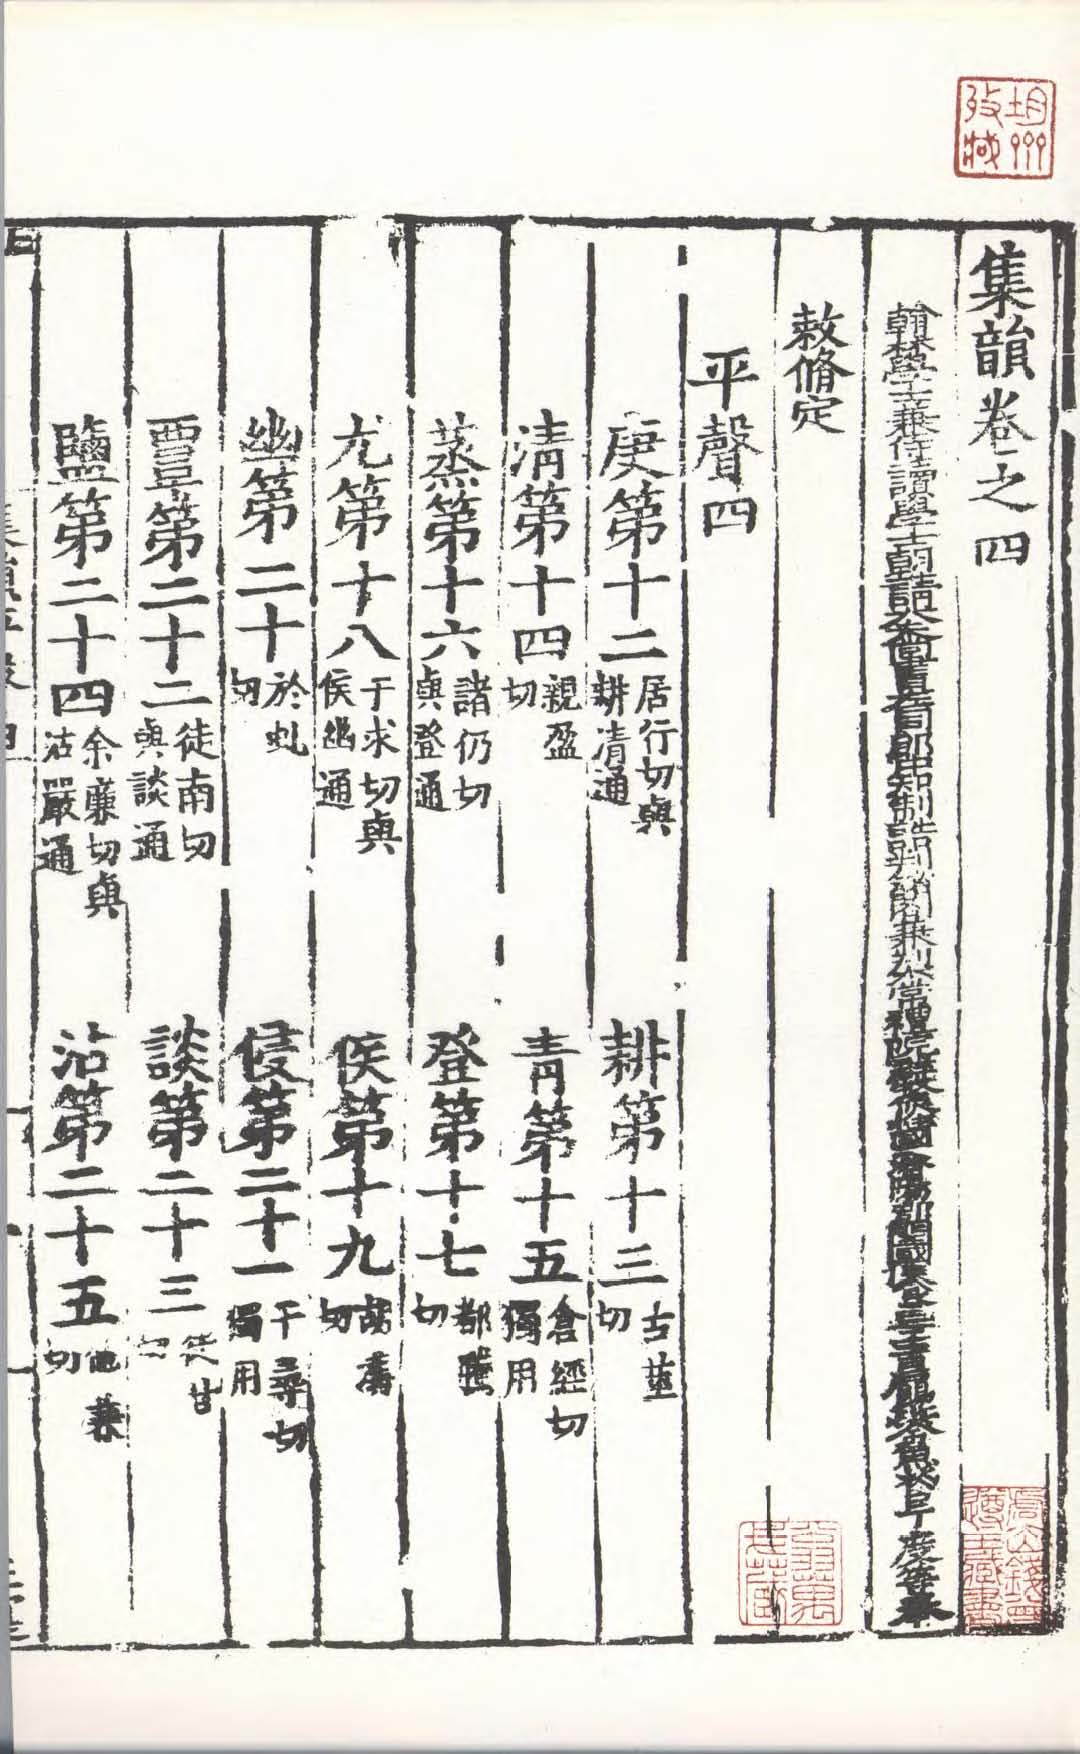 集韻卷之四
翰林學士兼侍讀學士朝請大夫尚書左司郎知制誥判祕閣兼判太常禮院 臣丁度等奉
敕脩定
平聲四
庚第十二 居行切與耕清通 耕第十三 古莖切
清第十四 親盈切 青第十五 倉經切獨用
蒸第十六 諸仍切與登通 登第十七 都騰切
尤第十八 于求切與侯幽通 侯第十九 胡溝切
幽第二十 於虯切 侵第二十一 千尋切獨用
覃第二十二 徒南切與談通 談第二十三 徒甘切
鹽第二十四 余廉切與沾嚴通 沾第二十五 他兼切